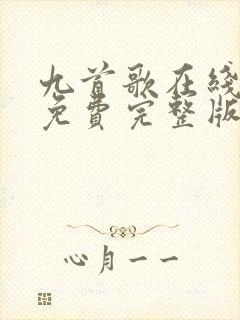 九首歌在线
免费完整版
心月一一